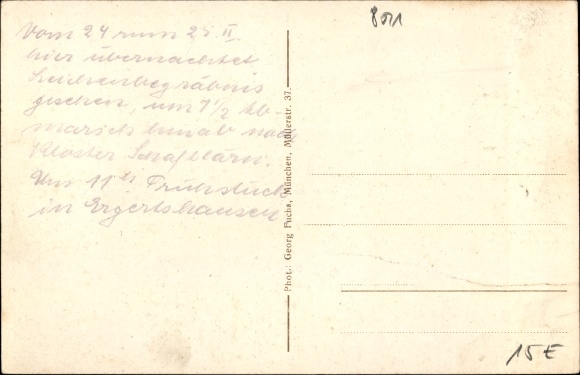 Vom 24 zum 25 II.
hier übernachtet
Leichenbegräbnis
gesehen, um 7 1/2 Ab-
marsch hinab nach
Kloster Schäftlarn.
Um 11 Frühstück
in Ergertshausen
Phot.: Georg Fuchs, München, Müllerstr. 37.
15 €